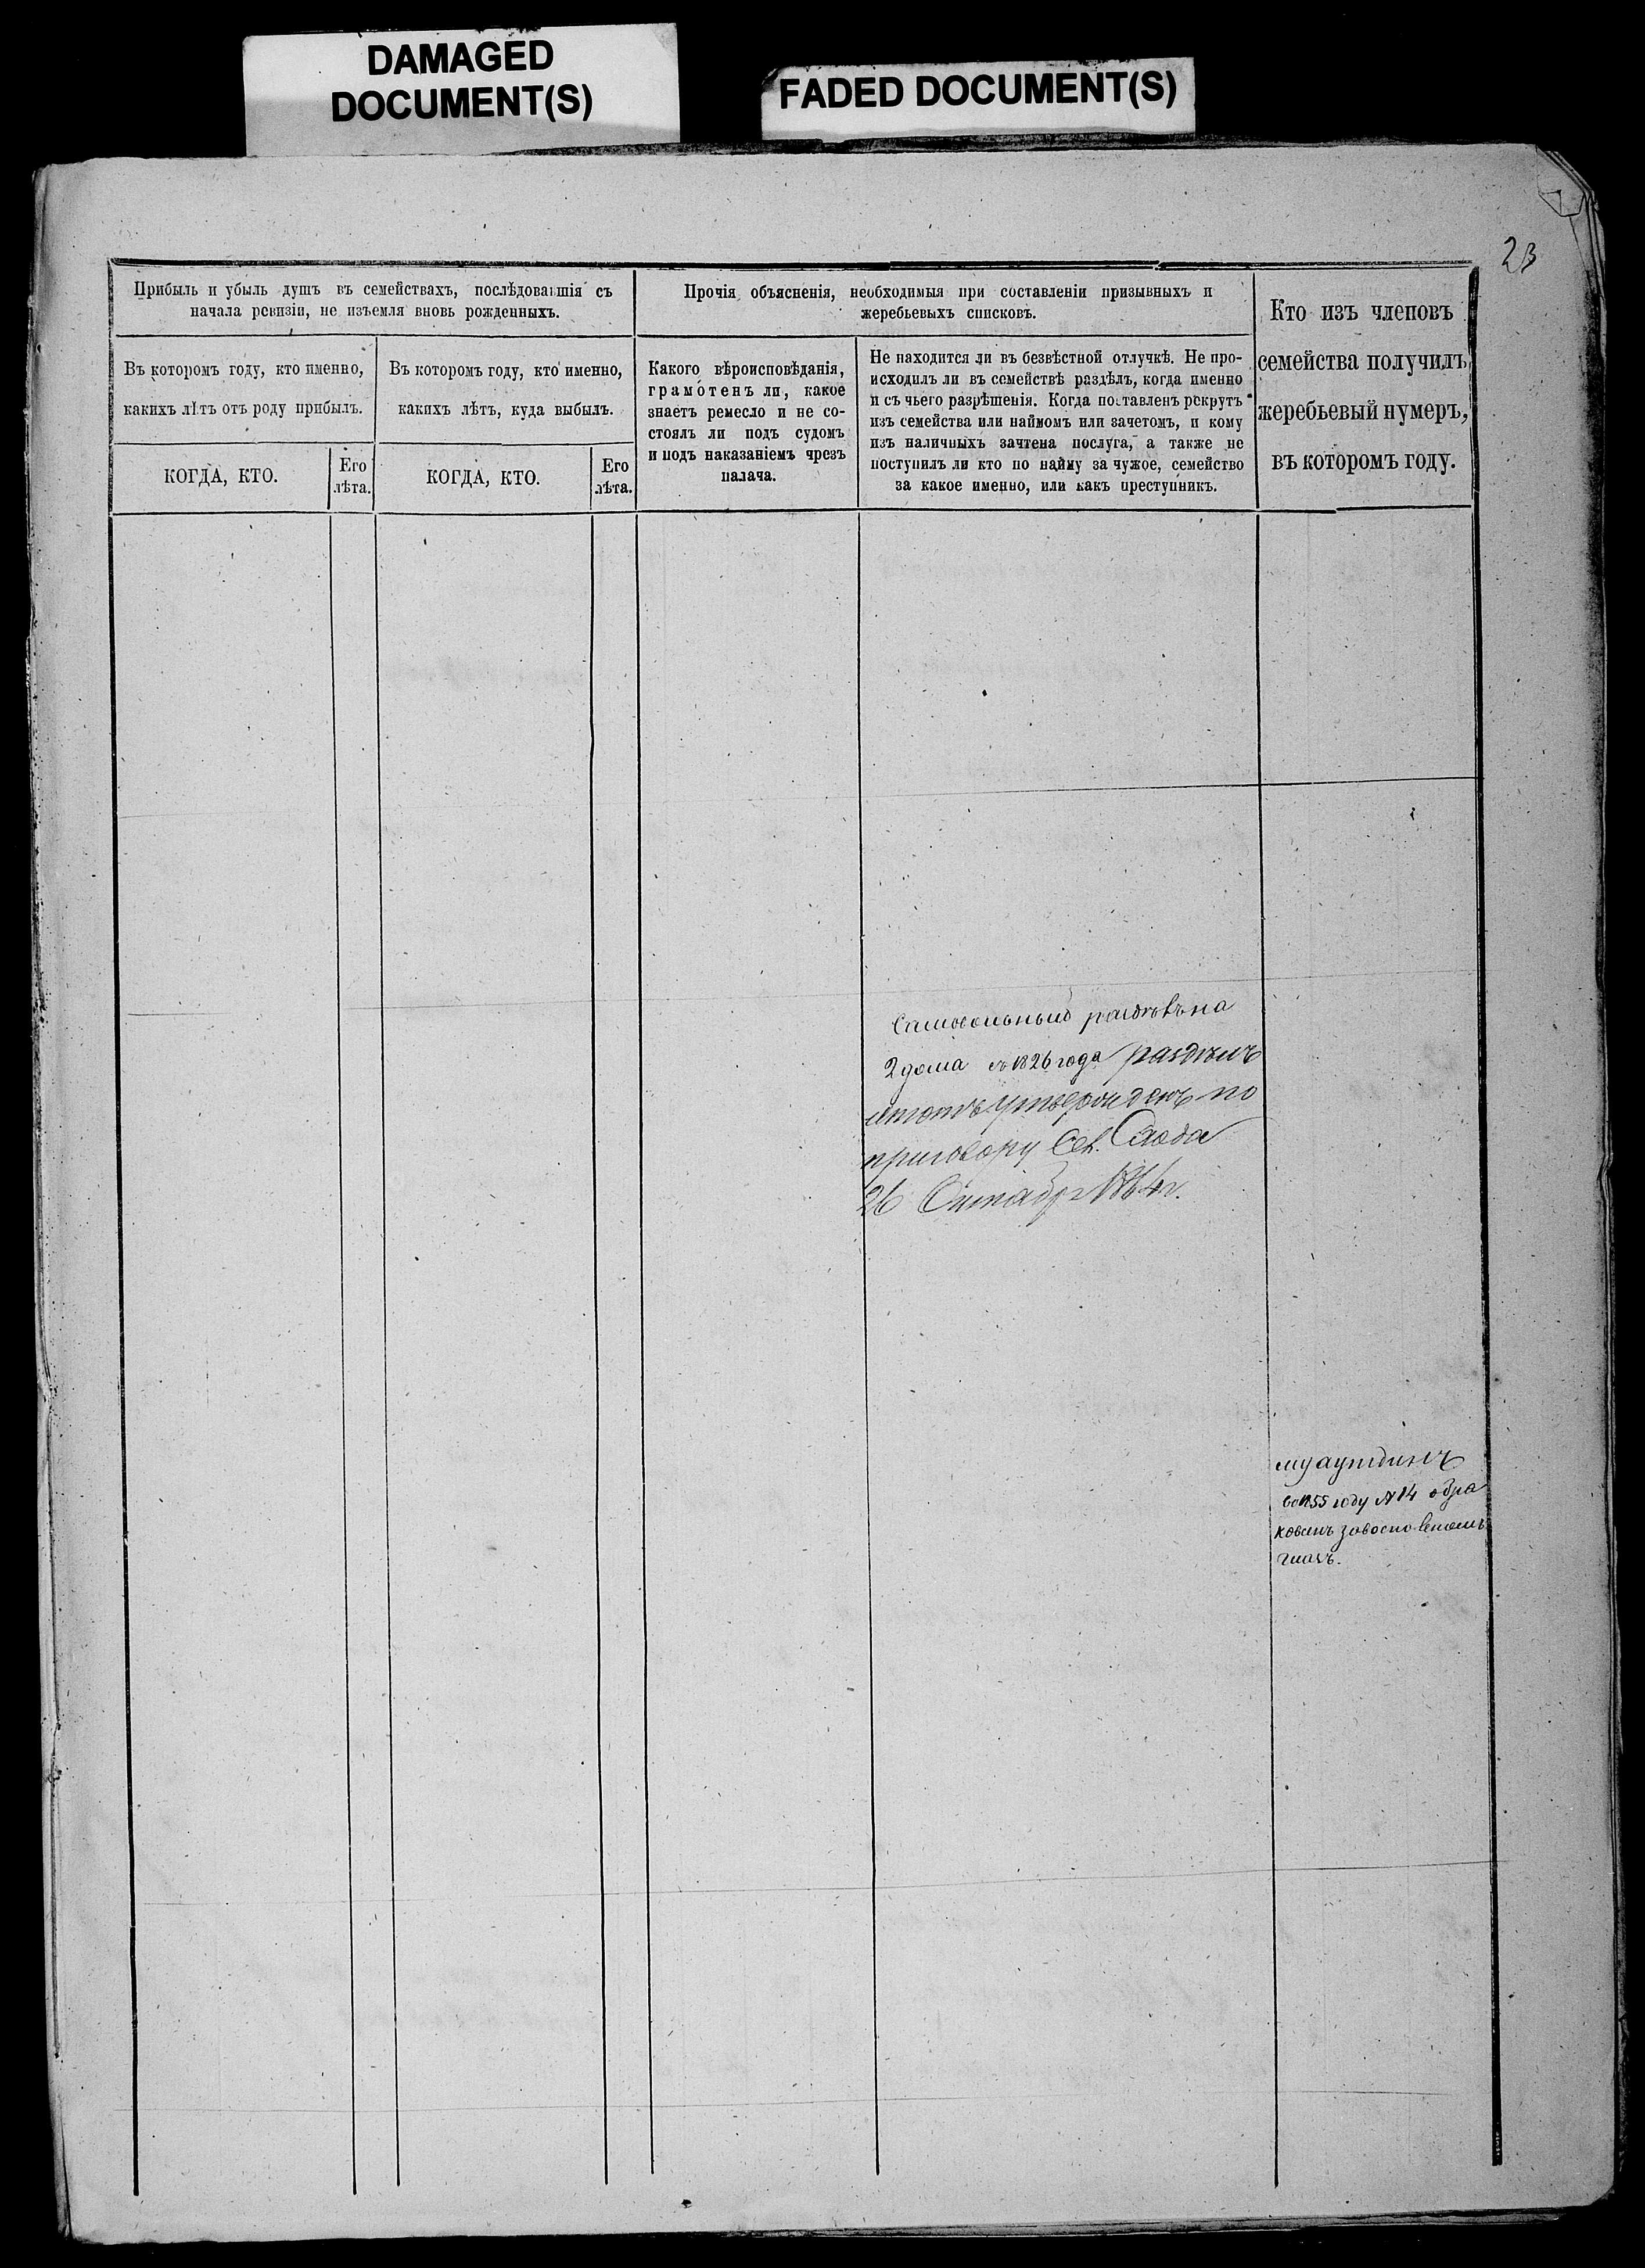 DAMAGED
DOCUMENT(S)
FADED DOCUMENT(S)
23
Прибыль и убыль душъ въ семействахъ, послѣдовавшія съ
начала ревизіи, не изъемля вновь рожденныхъ.
Въ которомъ году, кто именно,
какихъ лѣтъ отъ роду прибылъ.
КОГДА, КТО.
Его
лѣта.
Въ которомъ году, кто именно,
какихъ лѣтъ, куда выбылъ.
КОГДА, КТО.
Его
лѣта.
Прочія объясненія, необходимыя при составленіи призывныхъ и
жеребьевыхъ списковъ.
Какого вѣроисповѣданія,
грамотенъ ли, какое
знаетъ ремесло и не со-
стоялъ ли подъ судомъ
и подъ наказаніемъ чрезъ
палача.
Не находится ли въ безвѣстной отлучкѣ. Не про-
исходилъ ли въ семействѣ раздѣлъ, когда именно
и съ чьего разрѣшенія. Когда поставленъ рекрутъ
изъ семейства или наймомъ или зачетомъ, и кому
изъ наличныхъ зачтена послуга, а также не
поступилъ ли кто по найму за чужое, семейство
за какое именно, или какъ преступникъ.
Кто изъ членовъ
семейства получилъ
жеребьевый нумеръ,
въ которомъ году.
Самовольный раздѣлъ на
2 дома съ 1826 года раздѣлъ
этотъ утвержденъ по
приговору Сел. Схода
26 1864 г.
муаутдинъ
во 1855 году № 14 обра
кованъ за